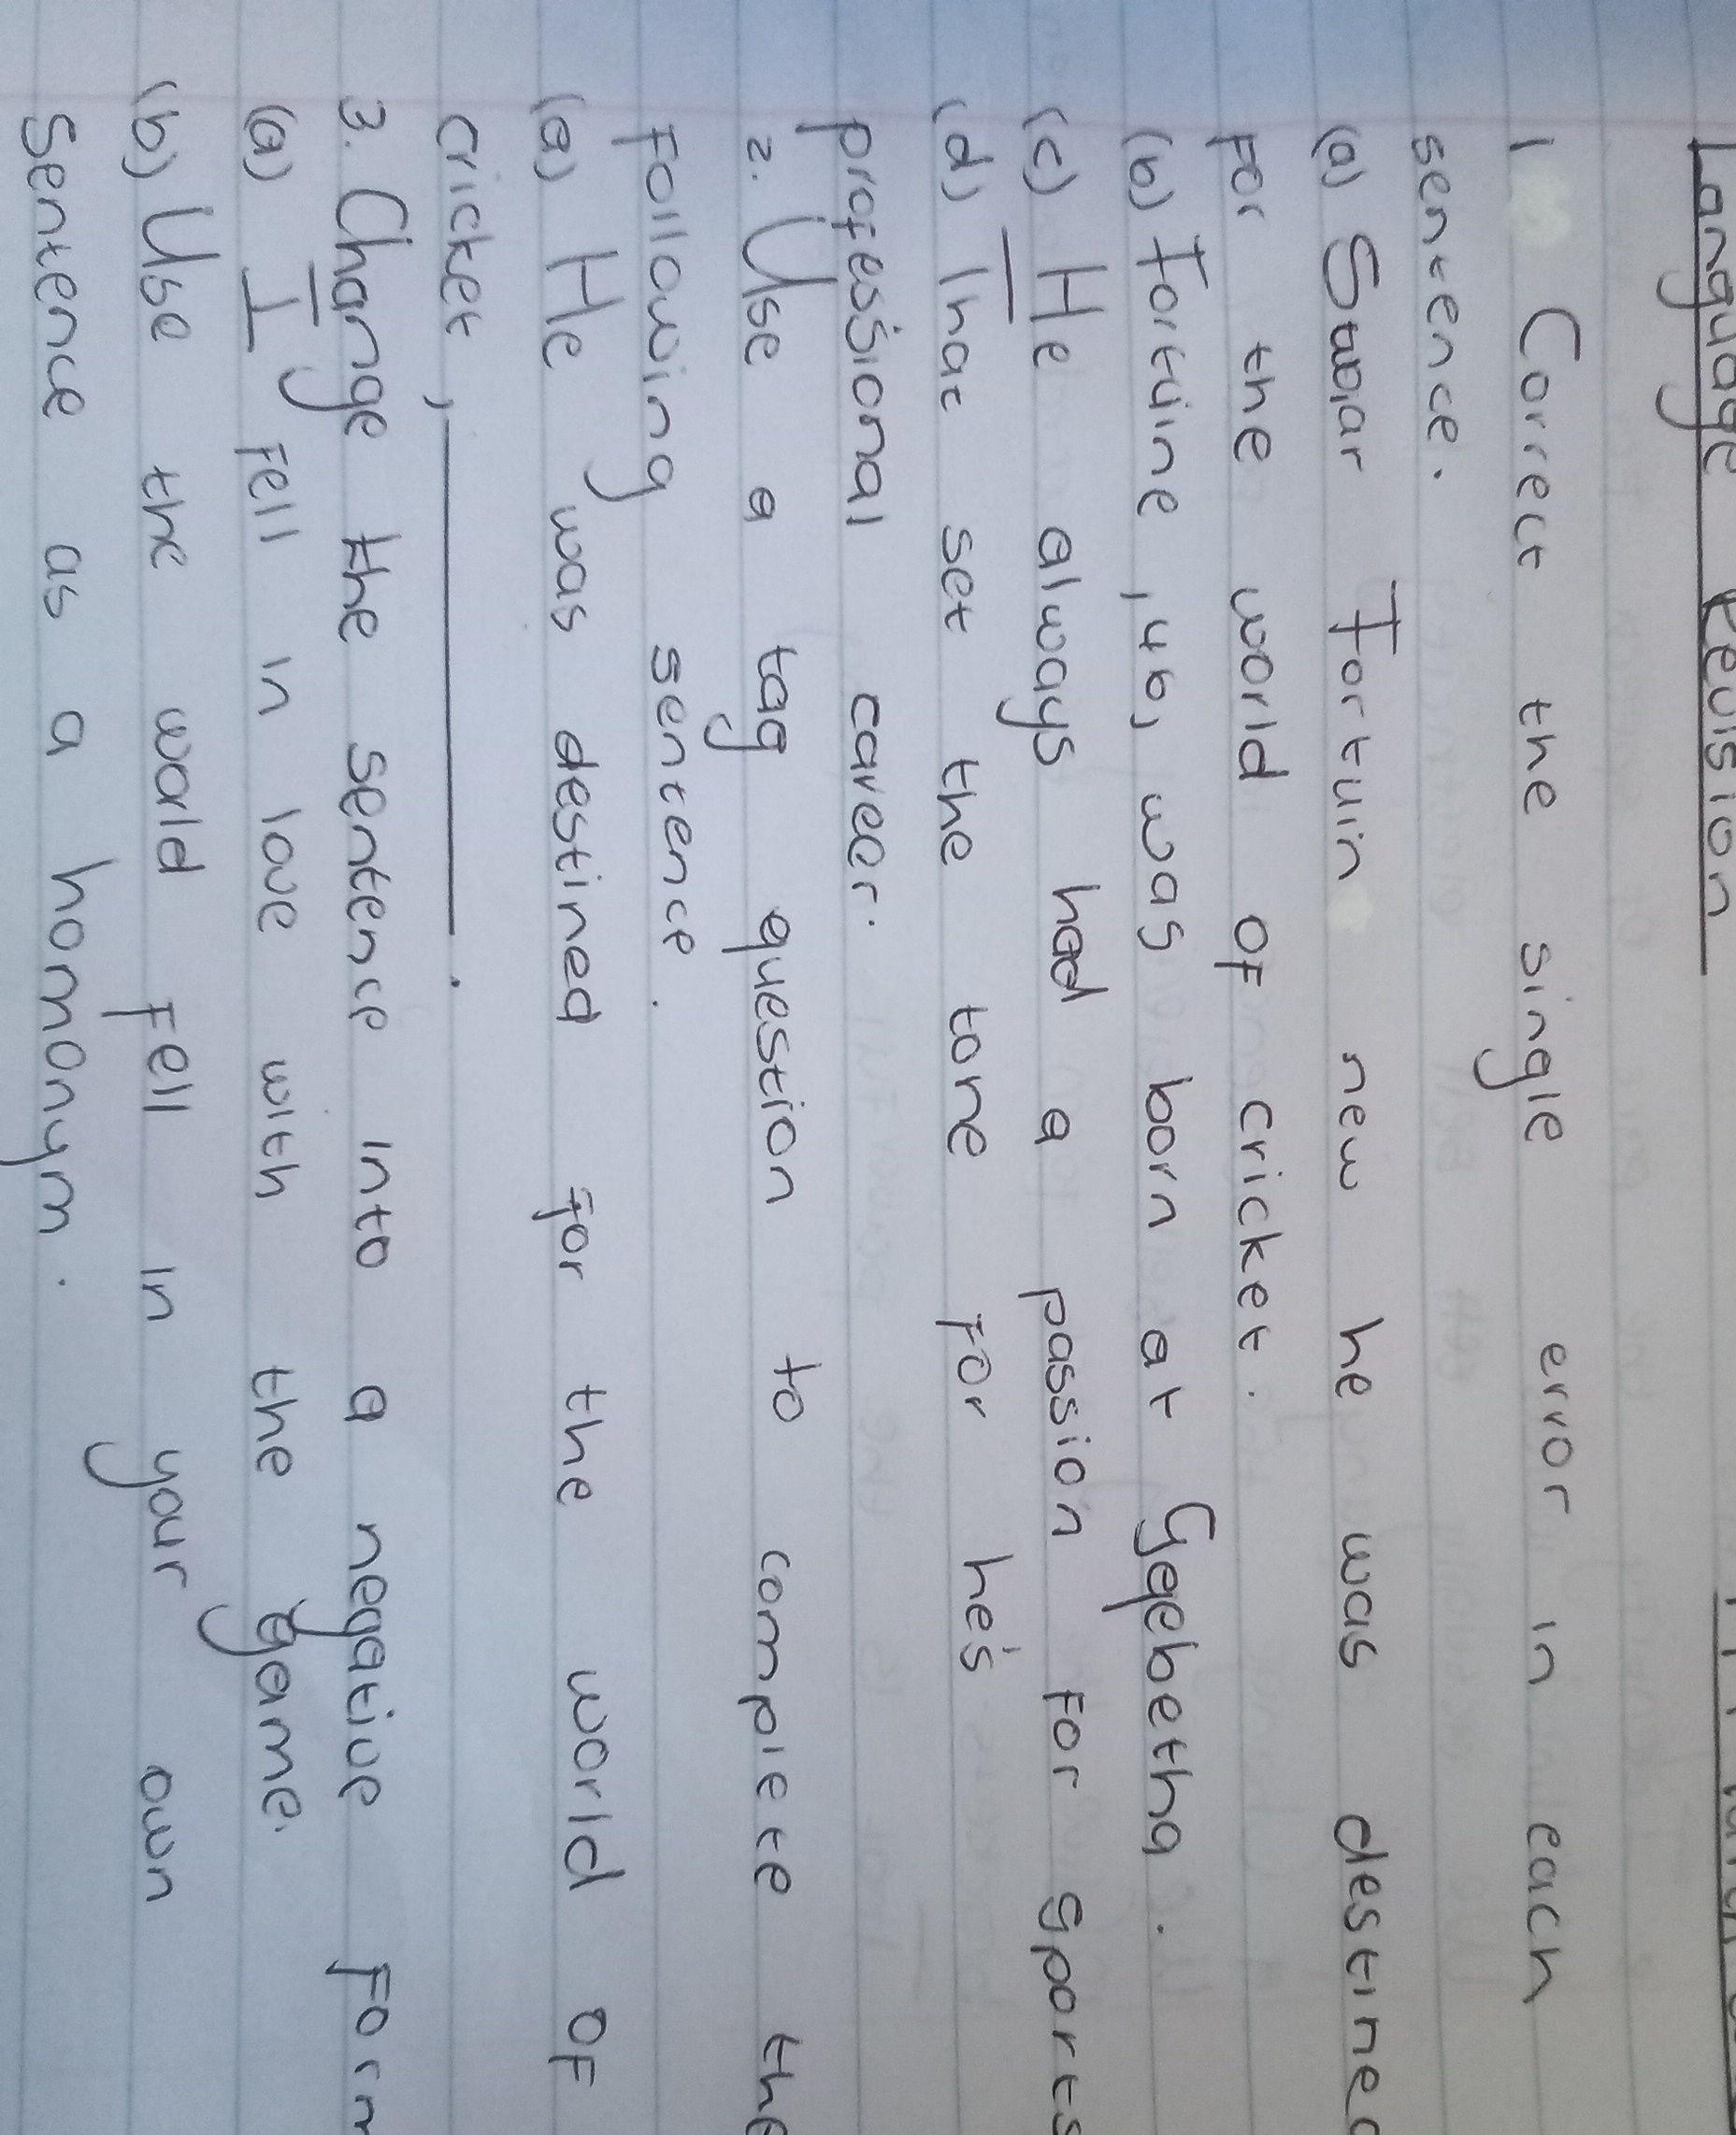 Language Revision
1 Correct the single error in each
sentence.
(a) Stuar Fortuin new he was destined
For the world of cricket.
(b) Fortuine, 46, was born at Gqebetha.
(c) He always had a passion for sports
(d) That set the tone for he's
professional career.
2. Use a tag question to complete the
following sentence.
(a) He was destined for the world of
cricket, ________.
3. Change the sentence into a negative form
(a) I fell in love with the game.
(b) Use the world fell in your own
Sentence as a homonym.